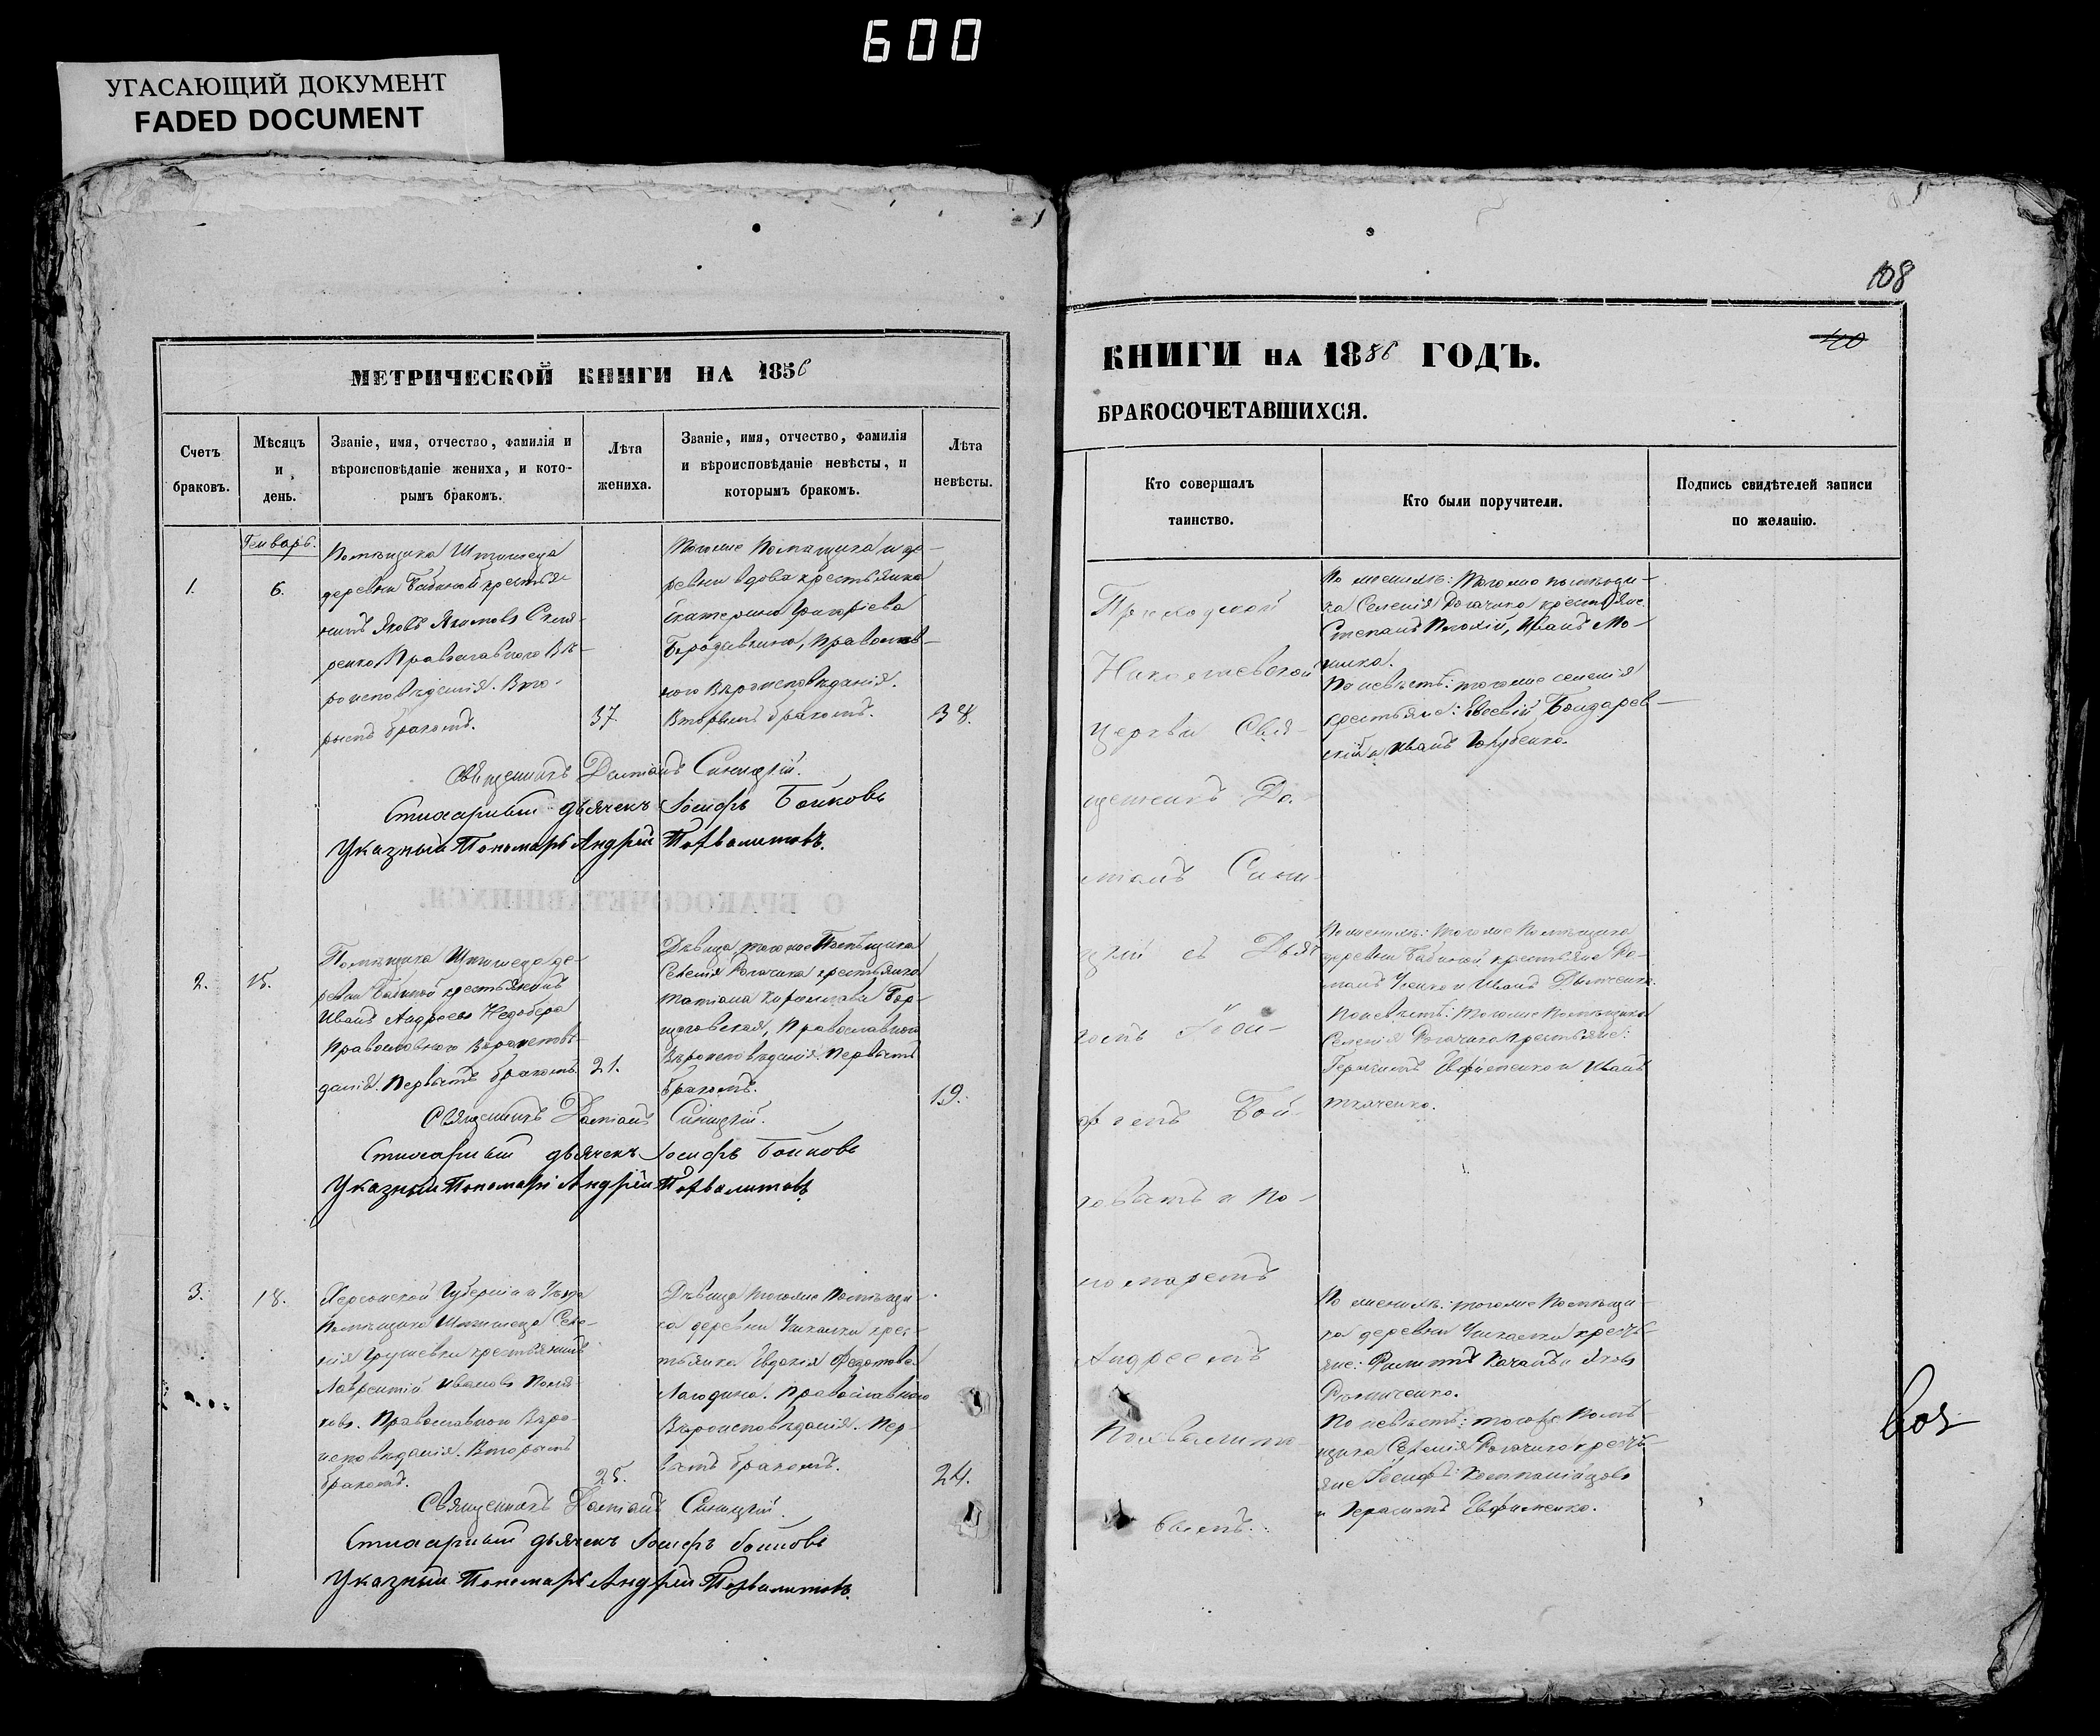 600
УГАСАЮЩИЙ ДОКУМЕНТ
FADED DOCUMENT
МЕТРИЧЕСКОЙ КНИГИ НА 1856
Счетъ браковъ.
Мѣсяцъ и день.
Званіе, имя, отчество, фамилія и
вѣроисповѣданіе жениха, и кото-
рымъ бракомъ.
Лѣта
жениха.
Званіе, имя, отчество, фамилія
и вѣроисповѣданіе невѣсты, и
которымъ бракомъ.
Лѣта
невѣсты.
Генварь.
1.
6.
Помѣщика
деревни Бабиной крестья-
нинъ Яковъ Якимовъ
Православного Вѣ-
роисповѣданія. Вто-
рымъ бракомъ.
37.
Тогоже Помѣщика и де-
ревни вдова крестьянка
Екатерина Григоріева
Бородавкина, Православ-
ного Вѣроисповѣданія.
Вторымъ бракомъ.
38.
Священникъ Даміанъ Синицкій.
Стихарный дьячекъ Іосифъ Бойковъ
Указный Пономарь Андрѣй
О БРАКОСОЧЕТАВШИХСЯ.
2.
15.
Помѣщика де-
ревни Бабиной крестьянинъ
Иванъ Андреевъ Недобера
Православного Вѣроисповѣ-
данія. Первымъ бракомъ.
21.
Дѣвица тогоже Помѣщика
Селенія Рогачика крестьянка
Татіана
Православного
Вѣроисповѣданія. Первымъ
бракомъ.
19.
Священникъ Даміанъ Синицкій.
Стихарный дьячекъ Іосифъ Бойковъ
Указный Пономарь Андрѣй
3.
18.
Херсонской Губерніи и Уѣзда
Помѣщика Селе-
нія Грушевки крестьянинъ
Лаврентій Ивановъ
Православного Вѣро-
исповѣданія. Вторымъ
бракомъ.
25.
Дѣвица тогоже Помѣщи-
ка деревни Ушкалки крес-
тьянка Евдокія Федотова
Лагодина. Православного
Вѣроисповѣданія. Пер-
вымъ бракомъ.
24.
Священникъ Даміанъ Синицкій.
Стихарный дьячекъ Іосифъ Бойковъ
Указный Пономарь Андрѣй
108
40
КНИГИ НА 1856 ГОДЪ.
БРАКОСОЧЕТАВШИХСЯ.
Кто совершалъ
таинство.
Кто были поручители.
Подпись свидѣтелей записи
по желанію.
Приходской
Николаевской
церкви Свя-
щенникъ Да-
міанъ Сини-
цкій съ Дьяч-
комъ Іоси-
фомъ Бой-
ковымъ и По-
номаремъ
Андреемъ
По женихѣ: тогоже помѣщи-
ка Селенія Рогачика крестьяне
Степанъ Плохій, Иванъ
По невѣстѣ: тогоже селенія
крестьяне: Евсевій Бондарев-
скій и Иванъ Голубенко.
По женихѣ: тогоже Помѣщика
деревни Бабиной крестьяне Ро-
манъ и Иванъ
По невѣстѣ: тогоже Помѣщика
Селенія Рогачика крестьяне:
Герасимъ Евфименко и Иванъ
Ткаченко.
По женихѣ: тогоже Помѣщи-
ка деревни Ушкалки кресть-
яне: Филиппъ Качанъ и Яковъ
По невѣстѣ: тогоже Помѣ-
щика Селенія Рогачика кресть-
яне Іосифъ
и Герасимъ Евфименко.